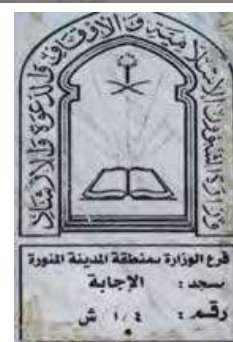 وزارة الشؤون الإسلامية والأوقاف والدعوة والإرشاد
فرع الوزارة بمنطقة المدينة المنورة
مسجد : الإجابة
رقم : ١٠٤ ش